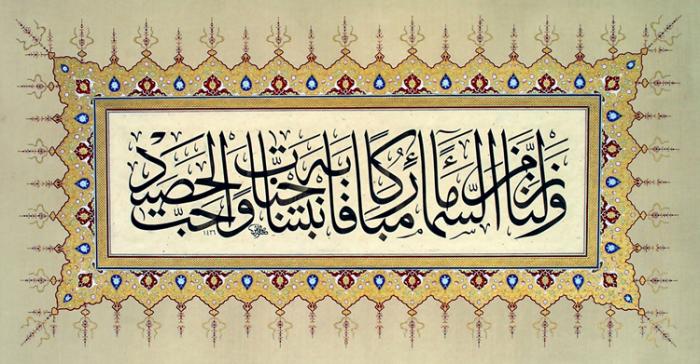 وَنَزَّلْنَا مِنَ السَّمَاءِ مَاءً مُبَارَكًا فَأَنْبَتْنَا بِهِ جَنَّاتٍ وَحَبَّ الْحَصِيدِ
١٤٢٦